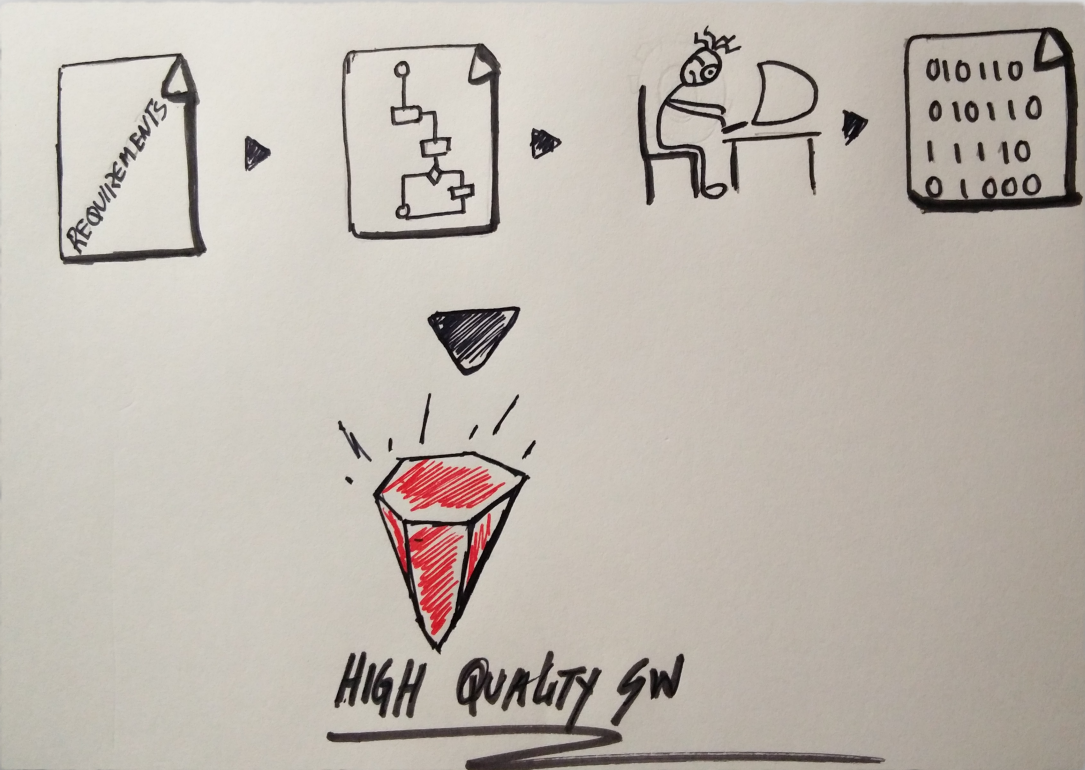 REQUIREMENTS
010110
010110
11110
01000
HIGH QUALITY SW